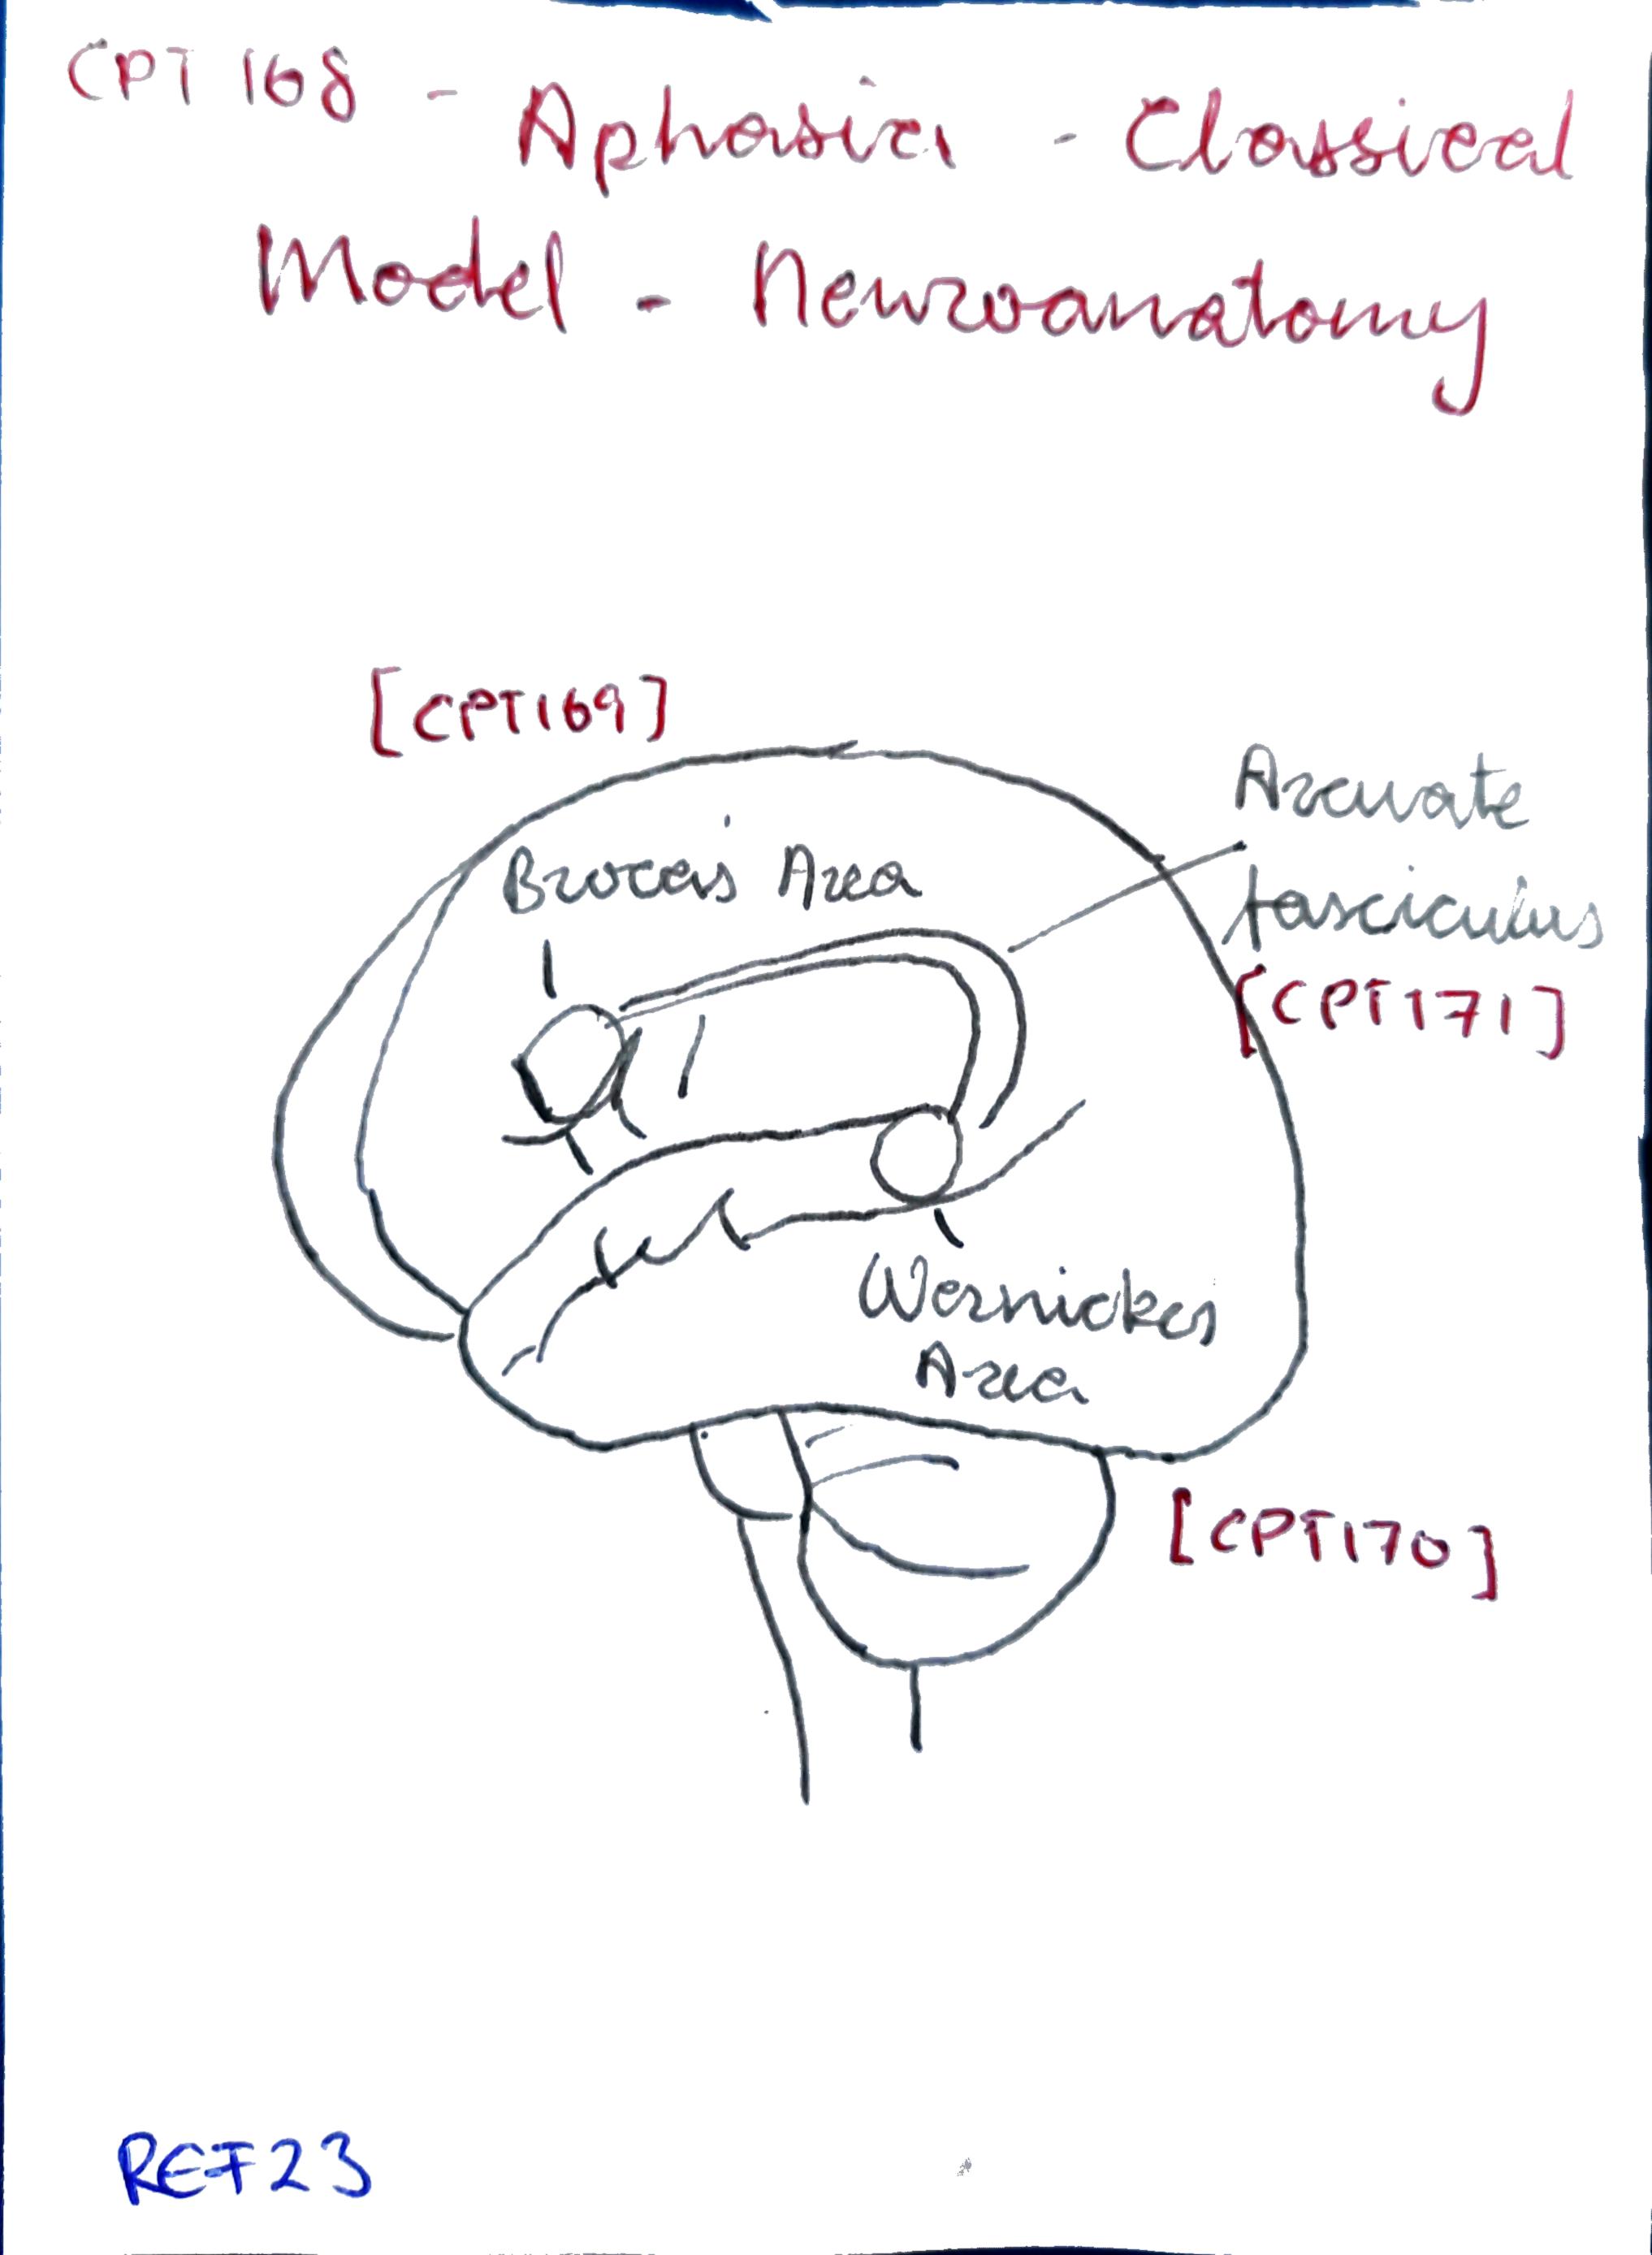 CPT 168 - Aphasia - Classical
Model - Neuroanatomy
[CPT169]
Arcuate
fasciculus
[CPT171]
Broca's Area
Wernickes
Area
[CPT170]
REF23